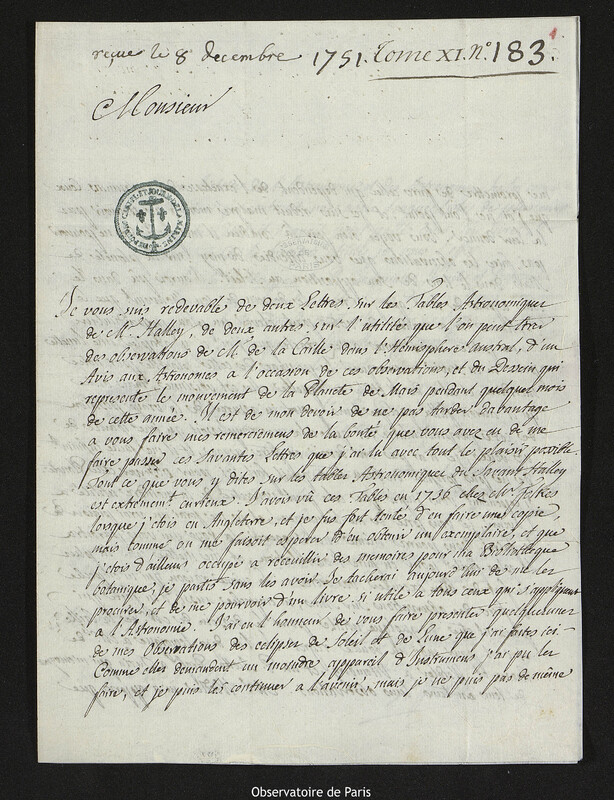 reçue le 8 decembre 1751. Tome XI. N.° 183.
Monsieur
Je vous suis redevable de deux Lettres sur les Tables Astronomiques
de M.r Halley, de deux autres sur l'utilité que l'on peut tirer
des observations de M. de la Caille dans l'Hemisphere austral, d'un
Avis aux Astronomes a l'occasion de ces observations, et du Dessein qui
represente le mouvement de la Planete de Mars pendant quelques mois
de cette année. Il est de mon devoir de ne pas tarder davantage
a vous faire mes remerciemens de la bonté que vous avez eu de me
faire passer ces Savantes Lettres que j'ai lu avec tout le plaisir possible.
Tout ce que vous y dites sur les tables Astronomiques du Savant Halley
est extremem.t curieux. J'avois vû ces Tables en 1736 chez M.r
lorsque j'etois en Angleterre, et je fus fort tenté d'en faire une copie,
mais comme on me faisoit esperer d'en obtenir un exemplaire, et que
j'etois d'ailleurs occupé a receuillir des memoires pour ma Bibliotheque
botanique, je partis sans les avoir. Je tacherai aujourd'hui de me les
procurer, et de me pourvoir d'un livre si utile a tous ceux qui s'appliquent
a l'Astronomie. J'ai eu l'honneur de vous faire presenter quelques unes
de mes Observations des eclipses de Soleil et de Lune que j'ai faites ici.
Comme elles demandent un moindre appareil d'Instrumens j'ai pu les
faire, et je puis les continuer a l'avenir, mais je ne puis pas de même
Observatoire de Paris